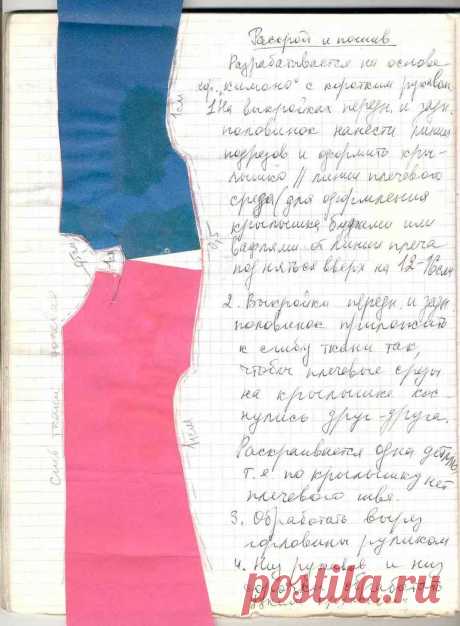 Раскрой и пошив
Разрабатывается на основе
"кимоно" с коротким рукавом
1. На выкройках передн. и задн.
половинок нанести линии
подрезов и оформить кры-
лышко // линии плечевого
среза (для оформления
крылышка буфами или
от линии плеча
подняться вверх на 12-16см
2. Выкройки передн. и задн.
половинок приложить
к сгибу ткани так,
чтобы плечевые срезы
на крылышке кос-
нулись друг-друга.
Раскраивается одна деталь,
т.е. по крылышку нет
плечевого шва.
3. Обработать вырез
горловины руликом
4. Низ рукава и низ
обработать
1см
0,5
1см
1см
сгиб ткани
postila.ru